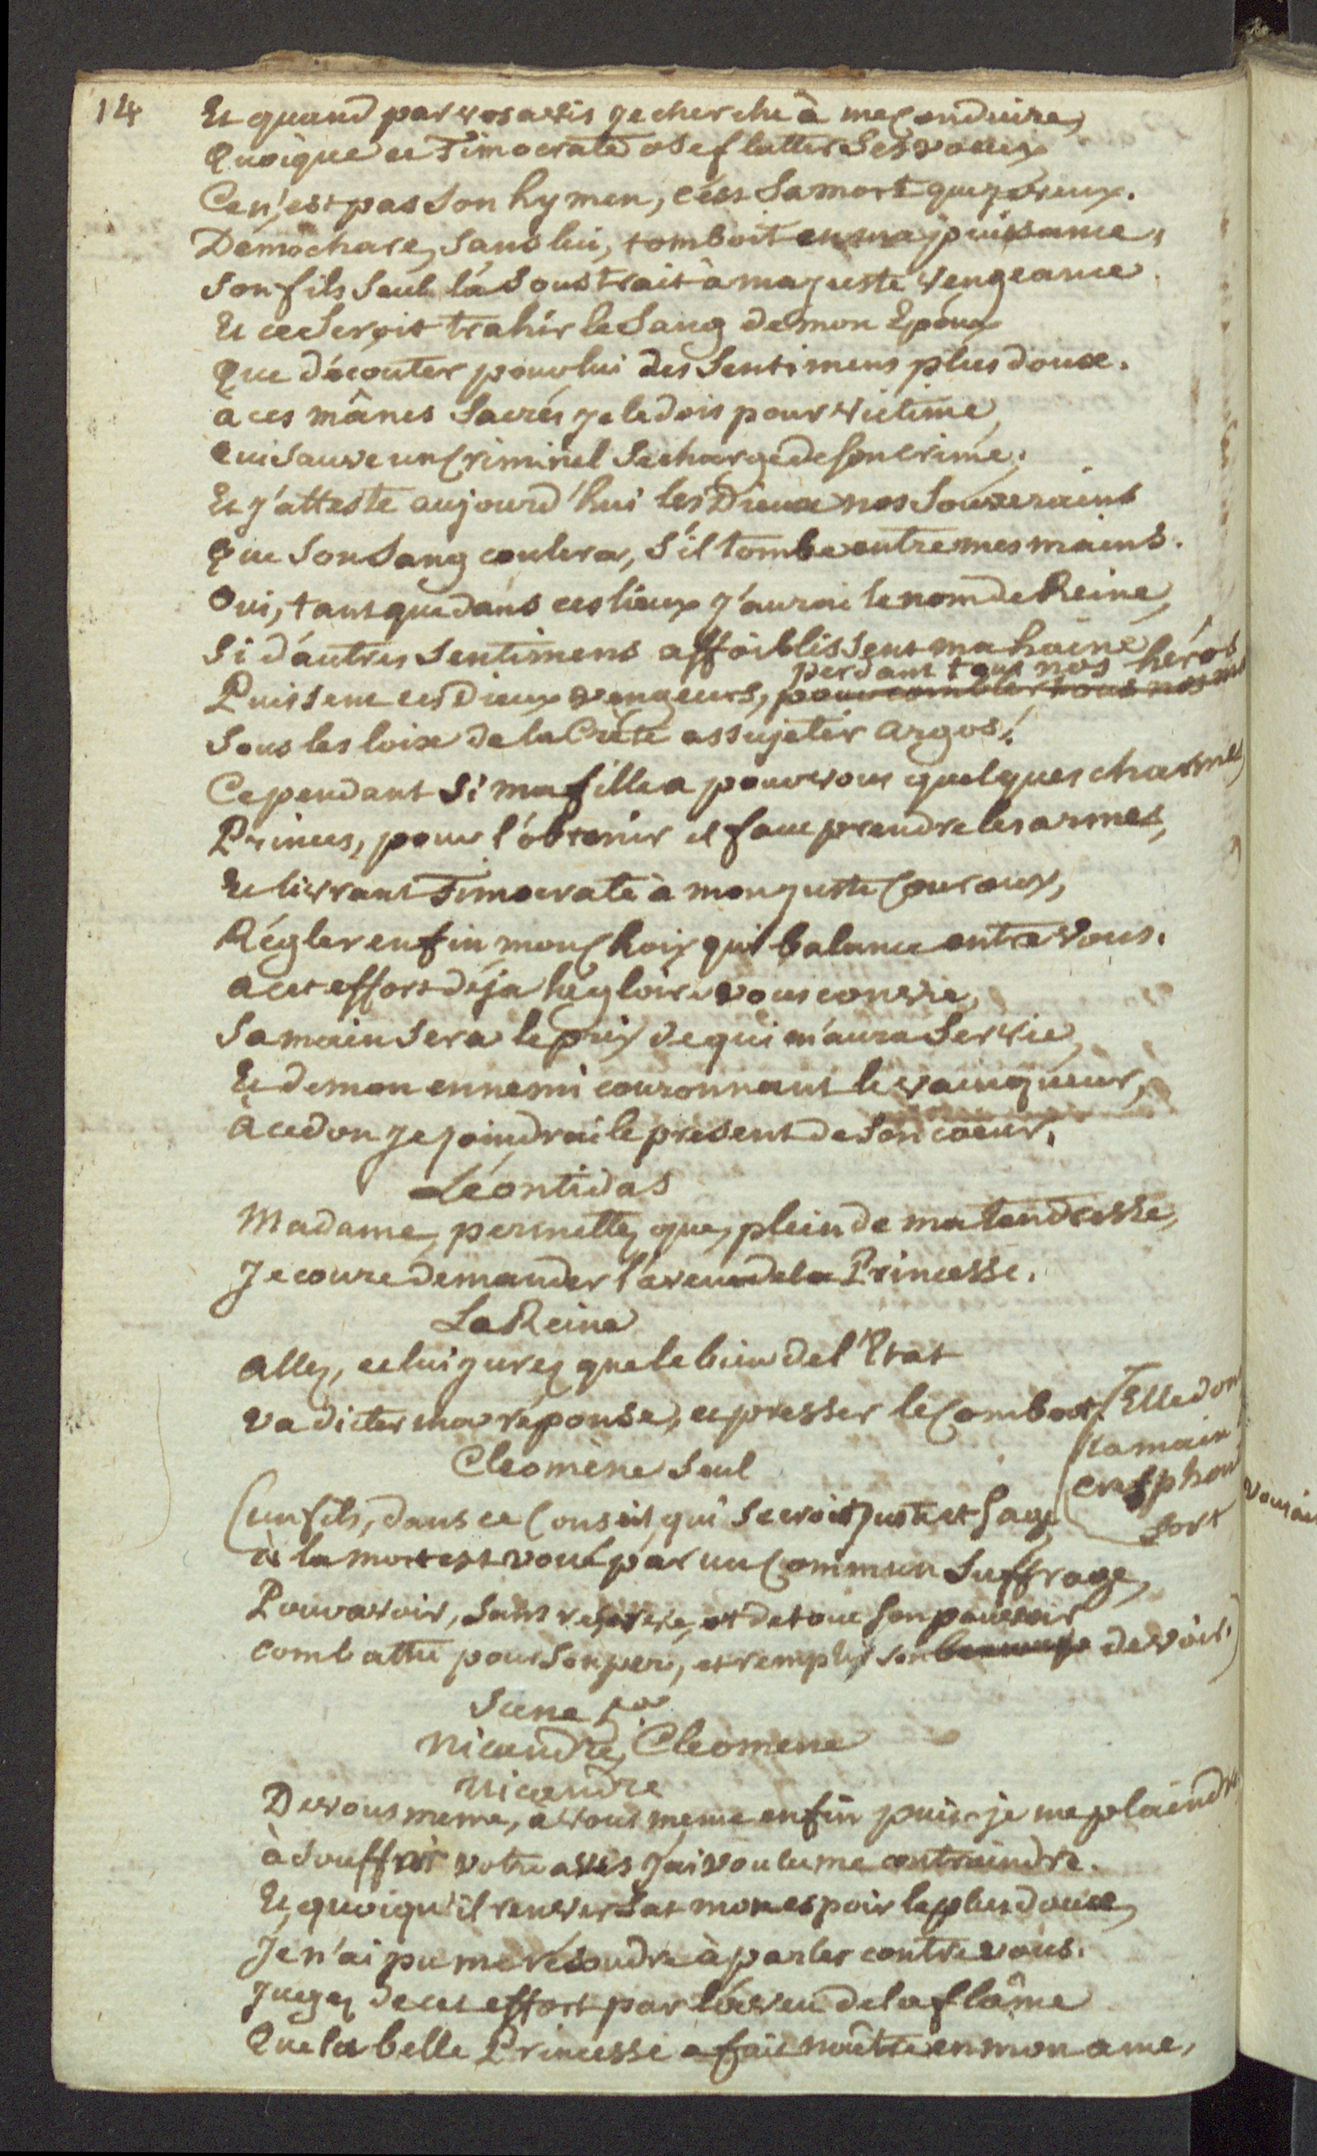 14
Et quand par vos avis je cherche à me Conduire,
Quoique ce Timocrate ose flatter Ses voeux
Ce n'est pas Son hymen, c'est Sa mort que je veux.
Démochare, Sans lui, tomboit en ma puissance,
Son fils Seul l'a Soustrait à ma juste Vengeance
Et ce Seroit trahir le Sang de mon Epoux
Que d'écouter pour lui des Sentimens plus doux.
à ces mânes Sacrés je le dois pour victime,
Qui Sauve un Criminel Se charge de Son crime,
Et j'atteste aujourd'hui les Dieux nos Souverains
Que Son Sang coulera, S'il tombe entre mes mains.
Oui, tant que dans ces lieux j'aurai le nom de Reine,
Si d'autres Sentimens affoiblissent ma haine
perdant tous nos héros
Puissent ces Dieux vengeurs, pour combler tous nos maux
Sous les loix de la Crète assujetir Argos!
Cependant Si ma fille a pour vous quelques charmes,
Princes, pour l'obtenir il faut prendre les armes,
Et livrant Timocrate à mon juste Couroux,
Régler enfin mon Choix qui balance entre Vous.
a cet effort déja la gloire vous convie,
Sa main Sera le prix de qui m'aura Servie
Et de mon ennemi couronnant le vainqueur,
à ce don je joindrai le présent de Son coeur.
Léontidas
Madame, permettez que, plein de ma tendresse,
Je coure demander l'aveu de la Princesse.
La Reine
allez, et lui jurez que le bien de l'Etat
va dicter ma réponse, et presser le Combat. (Elle don
la main
Cresphon
sort
Cleomène Seul
(un fils, dans ce Conseil qui Se croit juste et Sage
à la mort est voué par un Commun Suffrage,
Pour avoir, Sans reserve, et de tout Son pouvoir
combattu pour Son pere, et rempli son devoir.)
Scene
Nicandre, Cleomene
Nicandre
De vous meme, à vous meme enfin puis-je me plaindre
à Souffrir votre avis j'ai voulu me contraindre.
Et, quoiqu'il renversat mon espoir le plus doux,
Je n'ai pu me résoudre à parler contre vous.
Jugez de cet effort par l'aveu de la flâme
Que la belle Princesse a fait naître en mon ame,